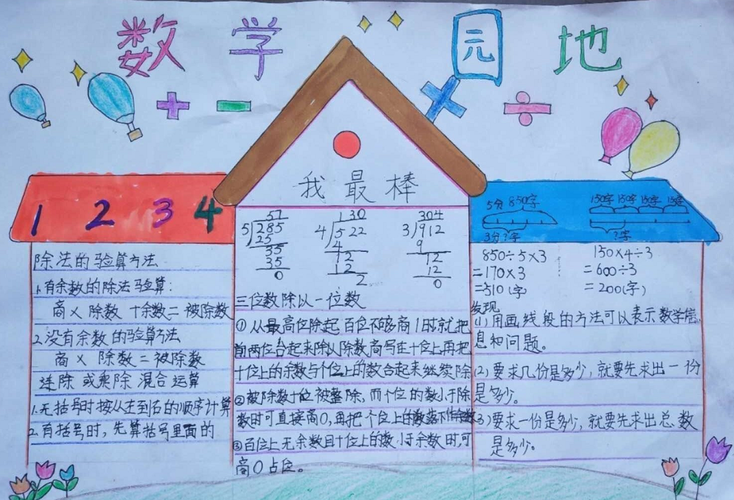 数学园地
+ - × ÷
1 2 3 4
除法的验算方法
1.有余数的除法验算:
商×除数+余数=被除数
2.没有余数的验算方法
商×除数=被除数
连除或乘除混合运算
1.无括号时按从左到右的顺序计算
2.有括号时,先算括号里面的
我最棒
57
5 285
25
35
35
0
130
4 522
4
12
12
2
304
3 912
9
12
12
0
三位数除以一位数
①从最高位除起百位不够商1时就把
前两位合起来除以除数商写在十位上再把
十位上的余数与个位上的数合起来继续除
②被除数十位被整除,而个位的数小于除
数时可直接商0,再把个位上的数落下作余数
③百位上无余数且十位上的数小于余数时可
商0占位。
5分850字
3分?字
150字 150字 150字 150字
?字
850÷5×3
=170×3
=510(字)
150×4÷3
=600÷3
=200(字)
发现
(1)用画线段的方法可以表示数学信
息和问题。
(2)要求几份是多少,就要先求出一份
是多少。
(3)要求一份是多少,就要先求出总数
是多少。